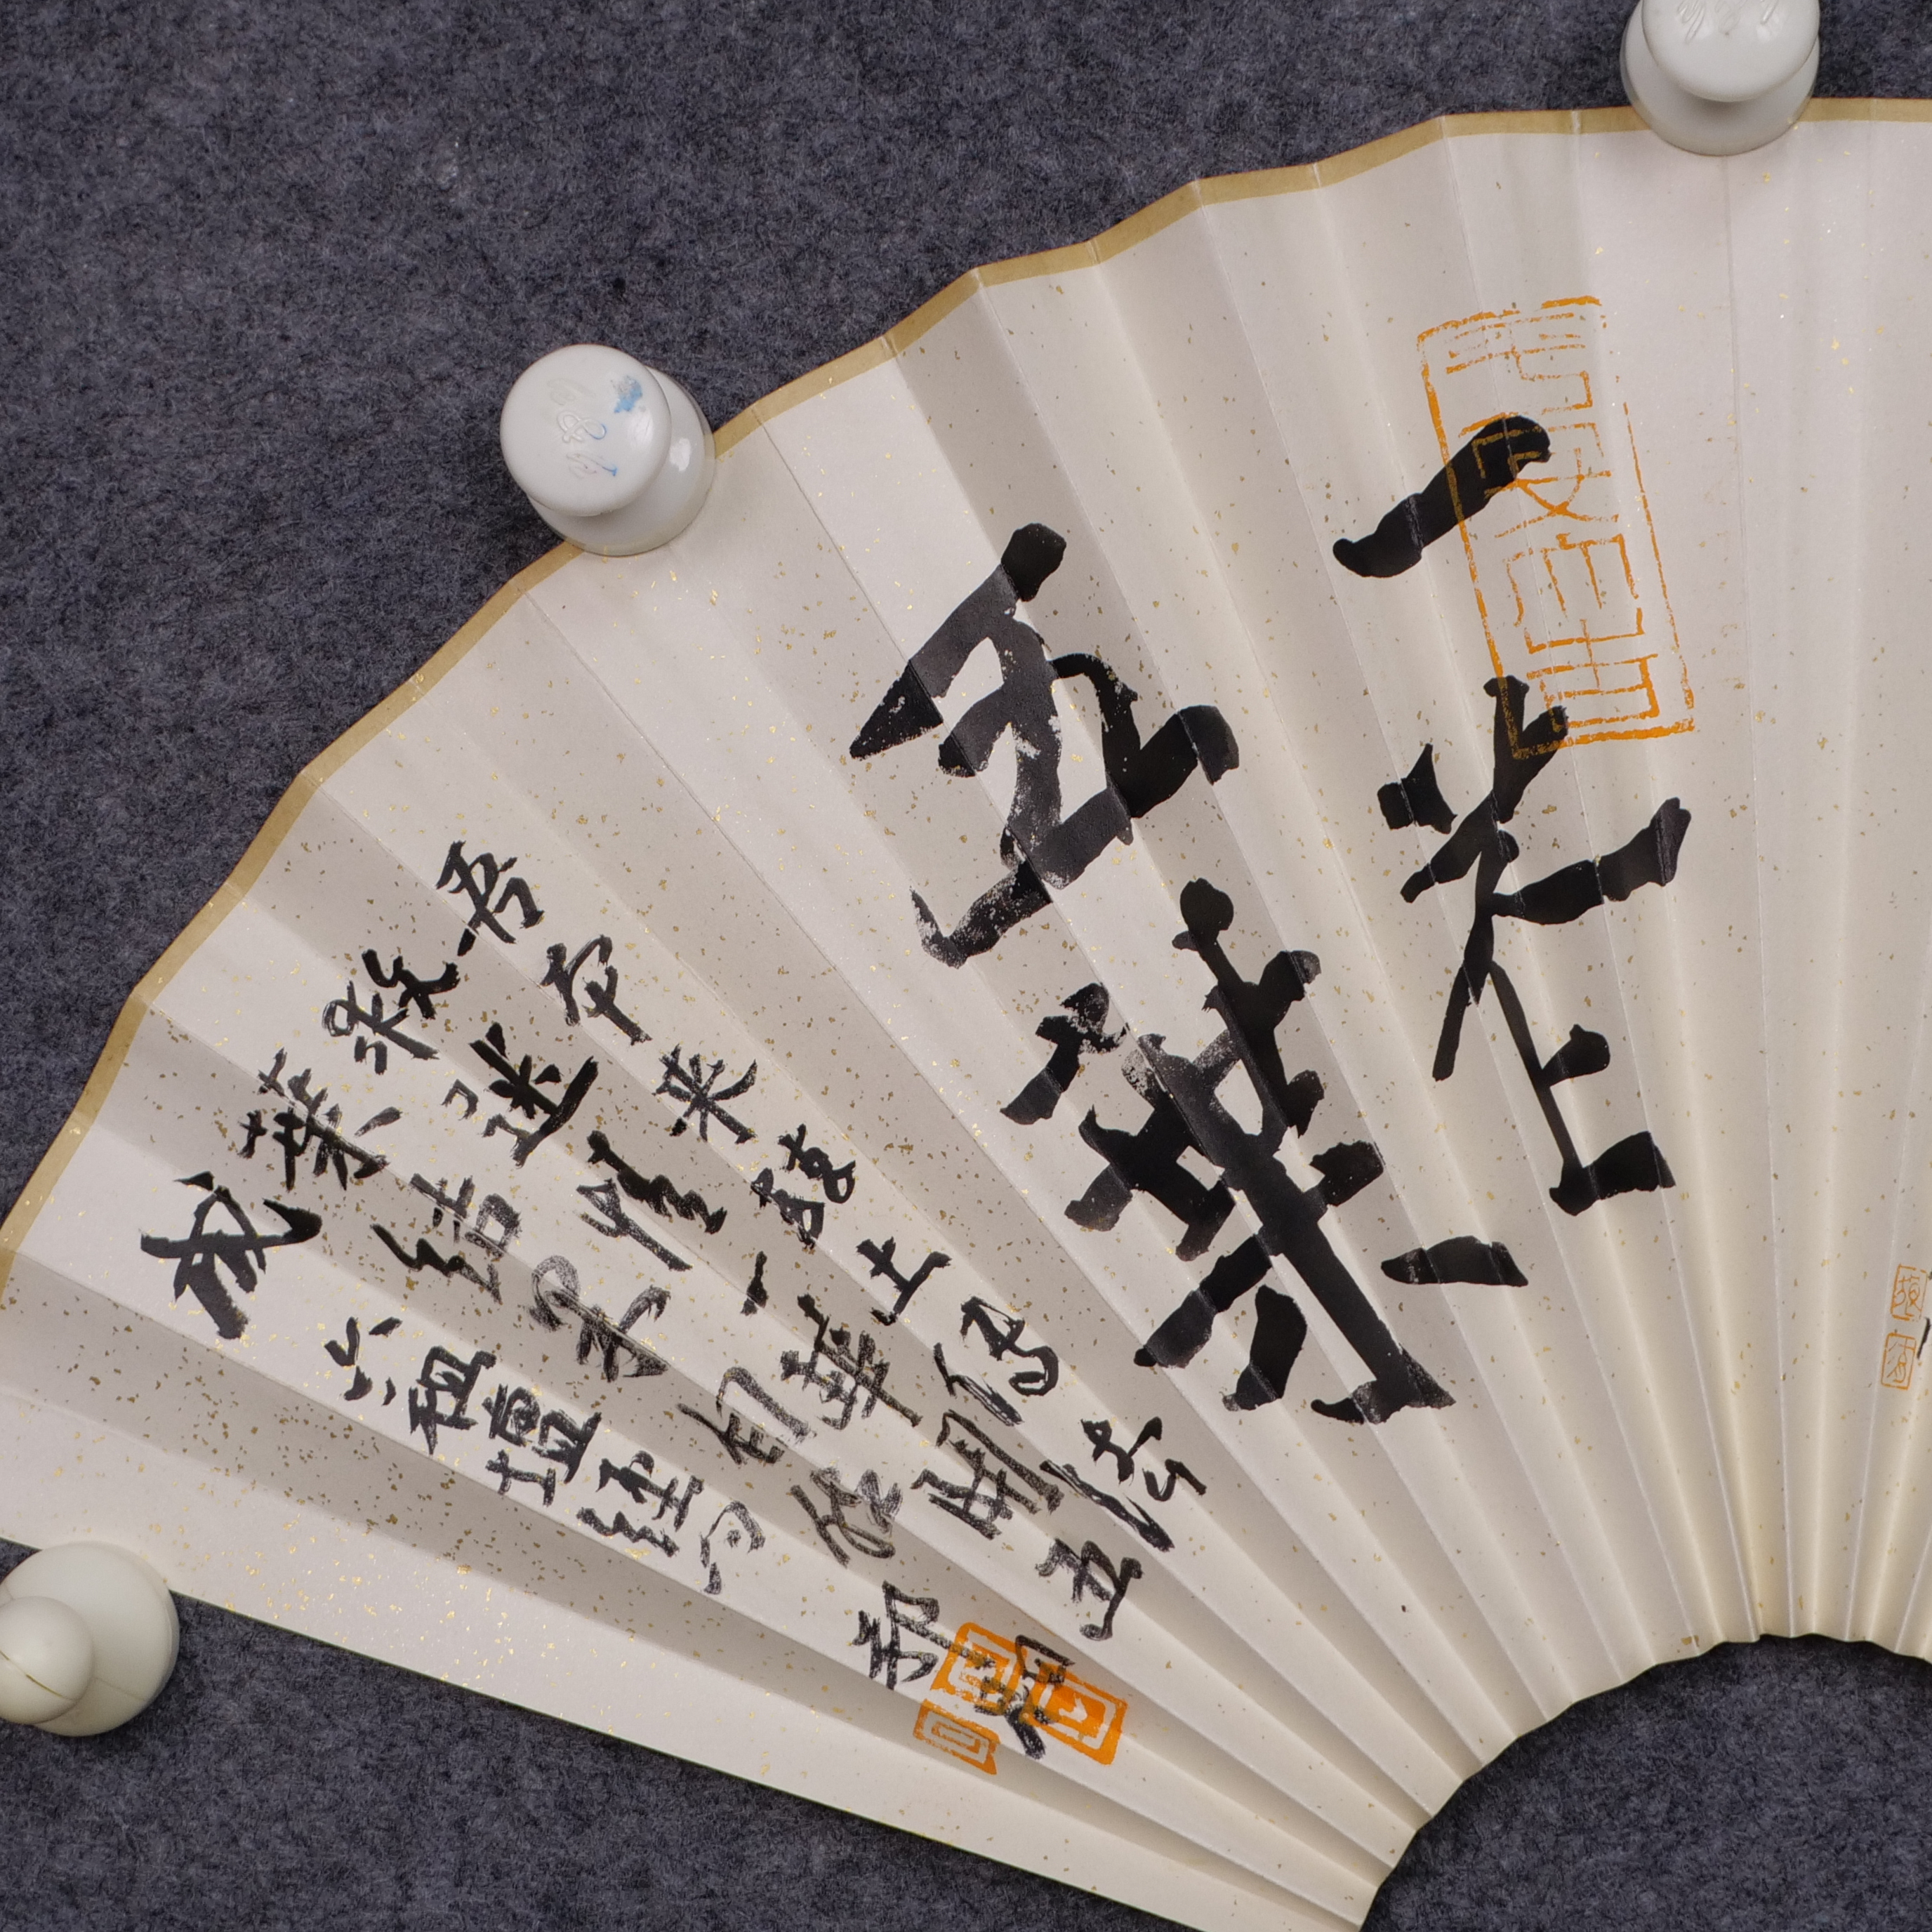 一花
五葉
吾本来茲土傳法
救迷情一華開五
葉結果自然
成六祖壇經句